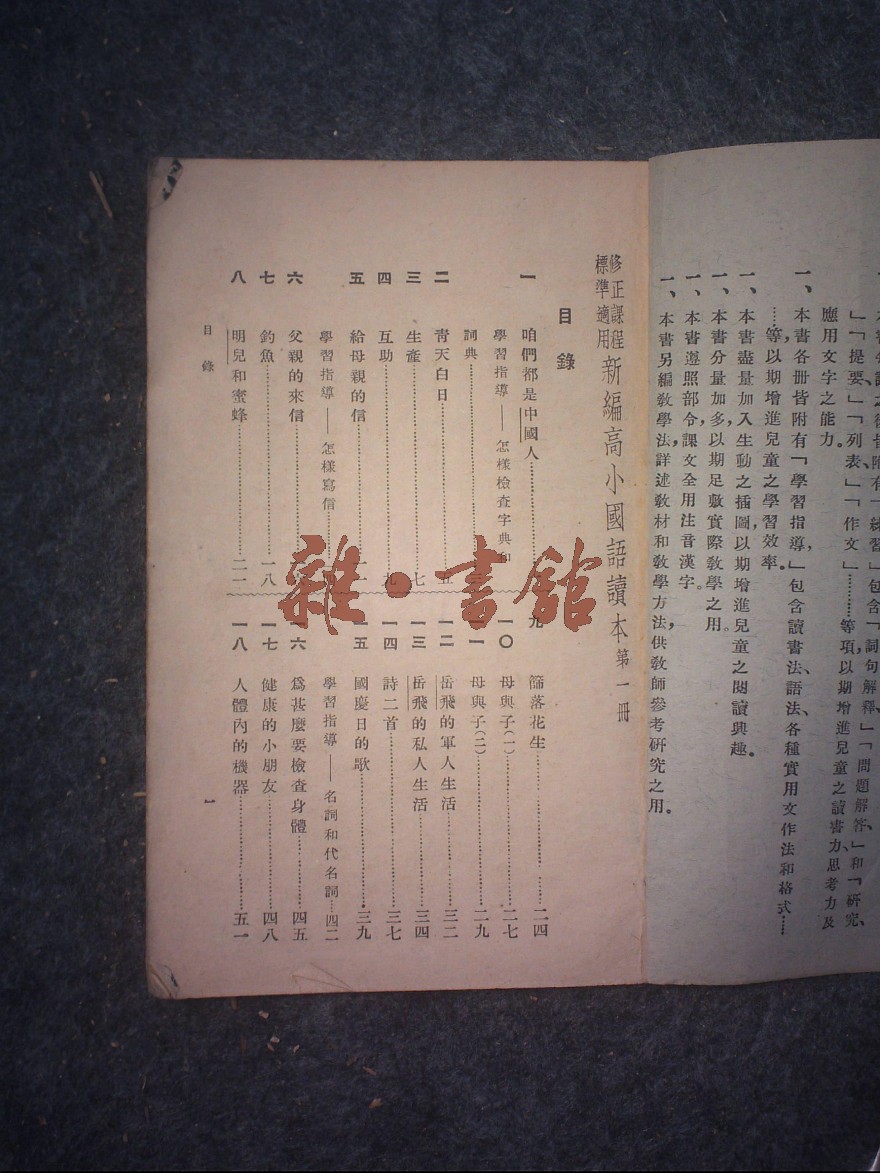 」「提要、」「列表」「作文」………等項，以期增進兒童之讀書力、思考力及
應用文字之能力。
一、本書各冊皆附有「學習指導，」包含讀書法、語法、各種實用文作法和格式……
……等，以期增進兒童之學習效率。
一、本書盡量加入生動之插圖，以期增進兒童之閱讀興趣。
一、本書分量加多，以期足敷實際教學之用。
一、本書遵照部令，課文全用注音漢字。
一、本書另編教學法，詳述教材和教學方法，供教師參考研究之用。
修正課程標準適用 新編高小國語讀本 第一冊
目錄
一 咱們都是中國人
學習指導——怎樣檢查字典和
詞典
二 青天白日 五
三 生產 七
四 互助 九
五 給母親的信
學習指導——怎樣寫信
六 父親的來信
七 釣魚 一八
八 明兒和蜜蜂 二一
九 篩落花生 二四
一〇 母與子(一) 二七
一一 母與子(二) 二九
一二 岳飛的軍人生活 三二
一三 岳飛的私人生活 三四
一四 詩二首 三七
一五 國慶日的歌 三九
學習指導——名詞和代名詞 四二
一六 爲甚麼要檢查身體 四五
一七 健康的小朋友 四八
一八 人體內的機器 五一
目錄 一
雜·書館